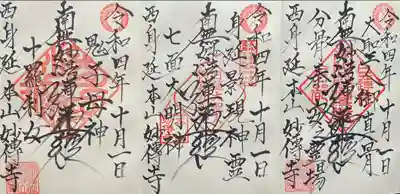 令和四年十月一日
大聖人御直骨
南無妙法蓮華経
分骨奉安霊場
西身延本山妙傳寺
令和四年十月一日
身延景現神霊
南無妙法蓮華経
七面大明神
西身延本山妙傳寺
令和四年十月一日
鬼子母神
南無妙法蓮華経
十羅刹女
西身延本山妙傳寺